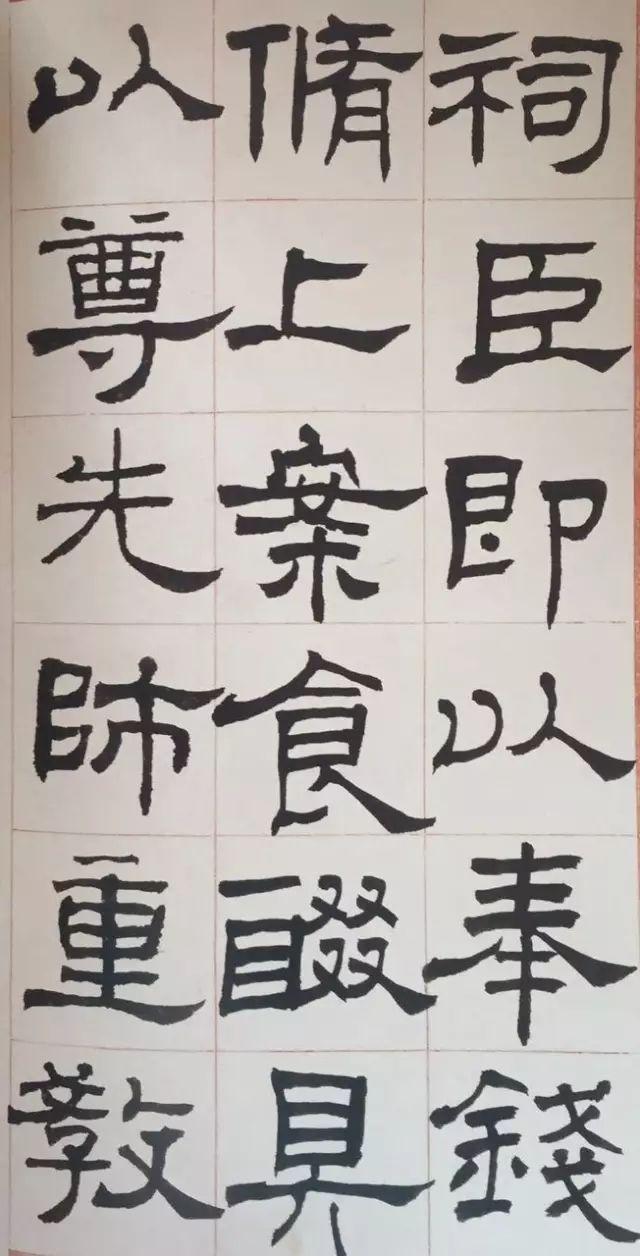 祠臣即以奉錢
脩上案食醊具
以尊先師重敎